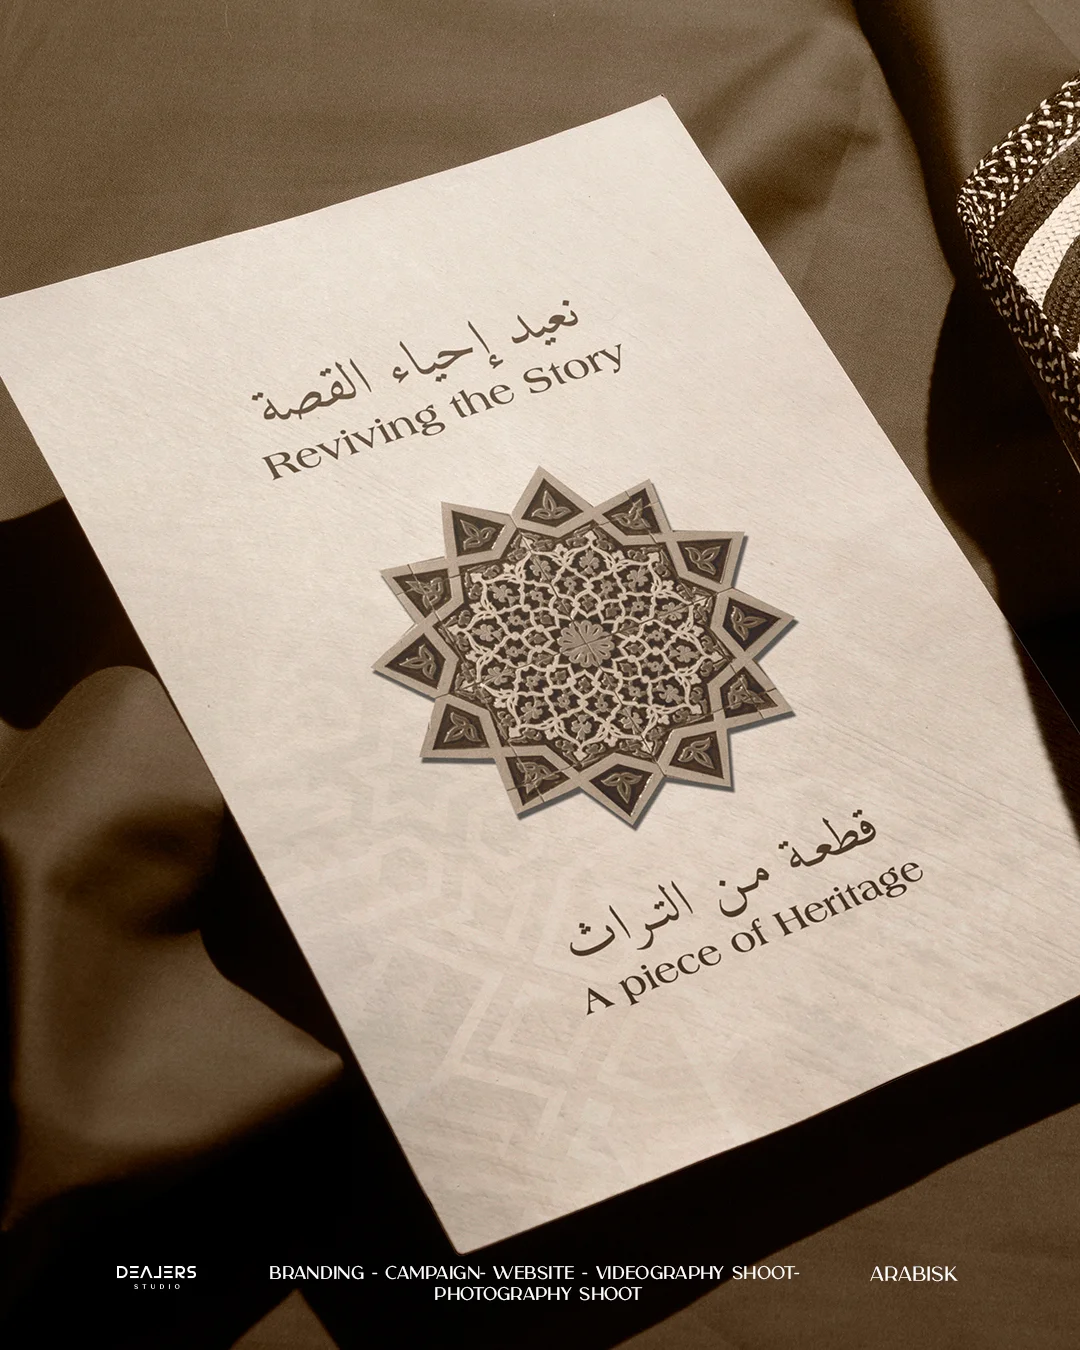 نعيد إحياء القصة
Reviving the Story
قطعة من التراث
A piece of Heritage
DEAJERS
STUDIO
BRANDING - CAMPAIGN- WEBSITE - VIDEOGRAPHY SHOOT-
PHOTOGRAPHY SHOOT
ARABISK